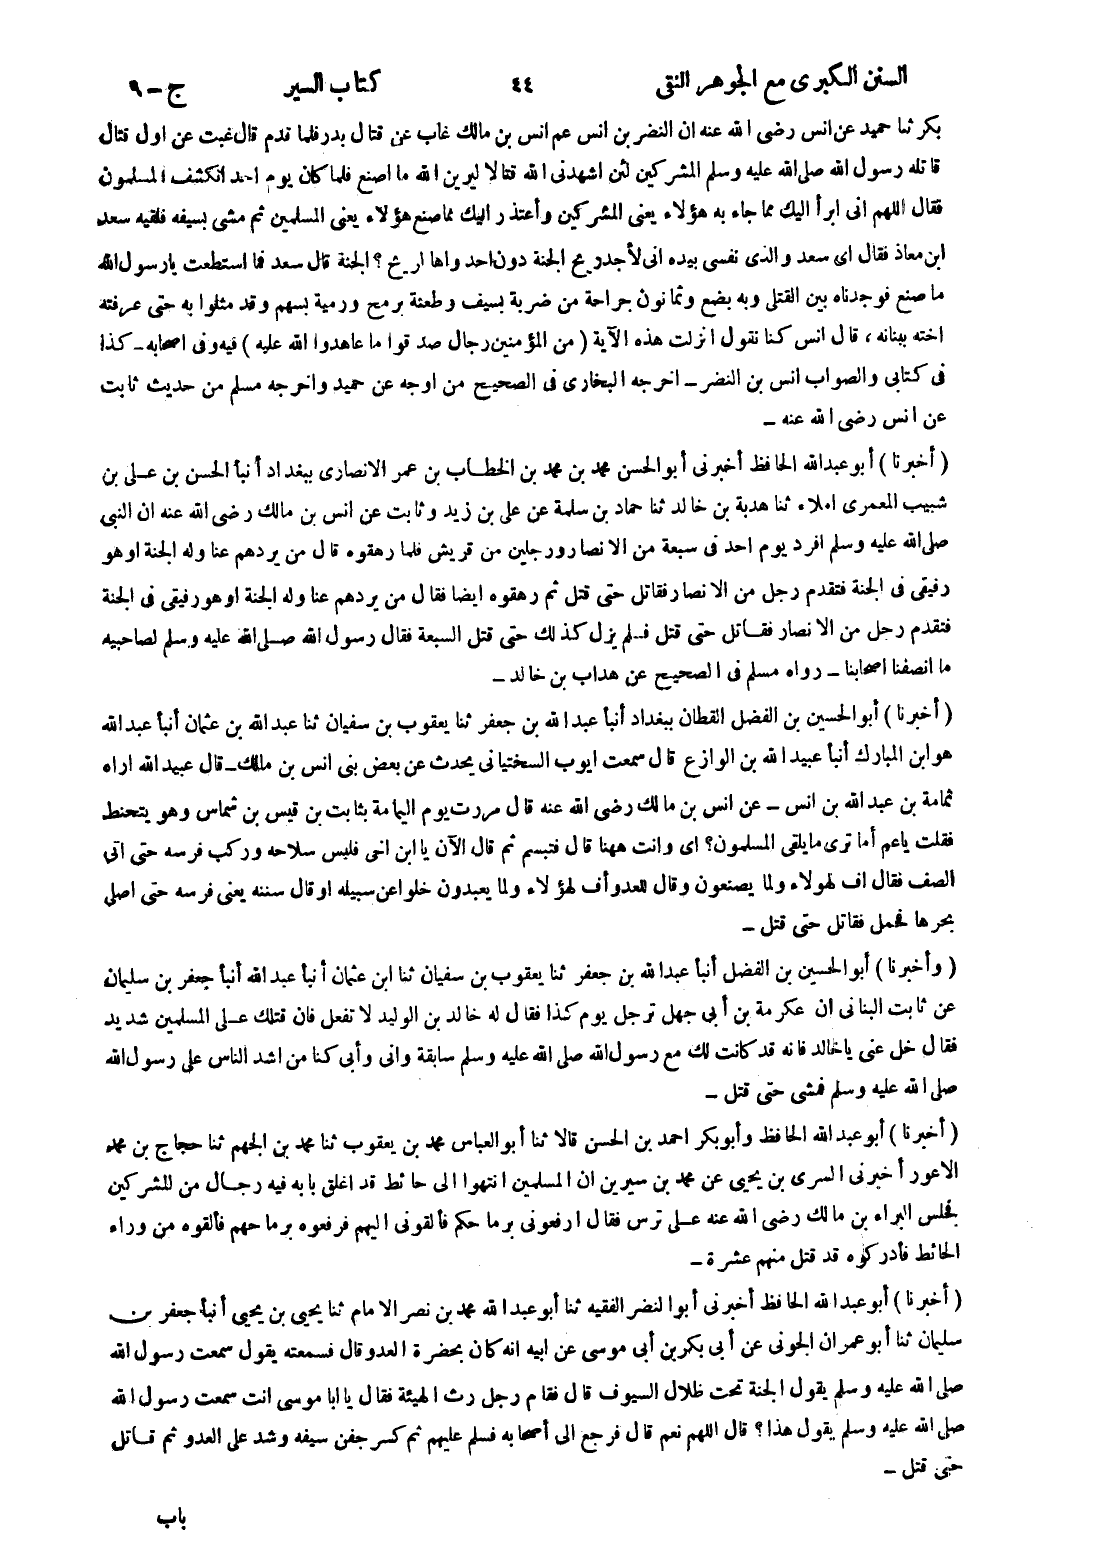 السنن الكبرى مع الجوهر النقى ٤٤ كتاب السير ج - ٩
بكر ثنا حميد عن انس رضى الله عنه ان النضر بن انس عم انس بن مالك غاب عن قتال بدر فلما قدم قال غبت عن اول قتال
قاتله رسول الله صلى الله عليه وسلم المشركين لئن اشهدنى الله قتالا ليرين الله ما اصنع فلما كان يوم احد انكشف المسلمون
فقال اللهم انى ابرأ اليك مما جاء به هؤلاء يعنى المشركين وأعتذر اليك مما صنع هؤلاء يعنى المسلمين ثم مشى بسيفه فلقيه سعد
ابن معاذ فقال اى سعد والذى نفسى بيده انى لأجد ريح الجنة دون احد واها اريح ؟ الجنة قال سعد فما استطعت يا رسول الله
ما صنع فوجدناه بين القتلى وبه بضع وثمانون جراحة من ضربة بسيف وطعنة برمح ورمية بسهم وقد مثلوا به حتى عرفته
اخته ببنانه ، قال انس كنا نقول انزلت هذه الآية ( من المؤمنين رجال صدقوا ما عاهدوا الله عليه ) فيه وفى اصحابه - كذا
فى كتابى والصواب انس بن النضر - اخرجه البخارى فى الصحيح من اوجه عن حميد واخرجه مسلم من حديث ثابت
عن انس رضى الله عنه -
( أخبرنا ) أبو عبد الله الحافظ أخبرنى أبو الحسن محمد بن محمد بن الخطاب بن عمر الانصارى ببغداد أنبأ الحسن بن على بن
شبيب المعمرى املاء ثنا هدبة بن خالد ثنا حماد بن سلمة عن على بن زيد وثابت عن انس بن مالك رضى الله عنه ان النبى
صلى الله عليه وسلم افرد يوم احد فى سبعة من الانصار ورجلين من قريش فلما رهقوه قال من يردهم عنا وله الجنة او هو
رفيقى فى الجنة فتقدم رجل من الانصار فقاتل حتى قتل ثم رهقوه ايضا فقال من يردهم عنا وله الجنة او هو رفيقى فى الجنة
فتقدم رجل من الانصار فقاتل حتى قتل فلم يزل كذلك حتى قتل السبعة فقال رسول الله صلى الله عليه وسلم لصاحبيه
ما انصفنا اصحابنا - رواه مسلم فى الصحيح عن هداب بن خالد -
( أخبرنا ) أبو الحسين بن الفضل القطان ببغداد أنبأ عبد الله بن جعفر ثنا يعقوب بن سفيان ثنا عبد الله بن عثمان أنبأ عبد الله
هو ابن المبارك أنبأ عبيد الله بن الوازع قال سمعت ايوب السختيانى يحدث عن بعض بنى انس بن مالك - قال عبيد الله اراه
ثمامة بن عبد الله بن انس - عن انس بن مالك رضى الله عنه قال مررت يوم اليمامة بثابت بن قيس بن شماس وهو يتحنط
فقلت يا عم أما ترى ما يلقى المسلمون؟ اى وانت ههنا قال فتبسم ثم قال الآن يا ابن اخى فلبس سلاحه وركب فرسه حتى اتى
الصف فقال اف لهولاء ولما يصنعون وقال للعدو أف لهؤلاء ولما يعبدون خلوا عن سبيله او قال سننه يعنى فرسه حتى اصلى
بحرها فحمل فقاتل حتى قتل -
( وأخبرنا ) أبو الحسين بن الفضل أنبأ عبد الله بن جعفر ثنا يعقوب بن سفيان ثنا ابن عثمان أنبأ عبد الله أنبأ جعفر بن سليمان
عن ثابت البنانى ان عكرمة بن أبى جهل ترجل يوم كذا فقال له خالد بن الوليد لا تفعل فان قتلك على المسلمين شديد
فقال خل عنى يا خالد فانه قد كانت لك مع رسول الله صلى الله عليه وسلم سابقة وانى وأبى كنا من اشد الناس على رسول الله
صلى الله عليه وسلم فمشى حتى قتل -
( أخبرنا ) أبو عبد الله الحافظ وأبوبكر احمد بن الحسن قالا ثنا أبو العباس محمد بن يعقوب ثنا محمد بن الجهم ثنا حجاج بن محمد
الاعور أخبرنى السرى بن يحيى عن محمد بن سيرين ان المسلمين انتهوا الى حائط قد اغلق بابه فيه رجال من للشركين
فجلس البراء بن مالك رضى الله عنه على ترس فقال ارفعونى برماحكم فألقونى اليهم فرفعوه برماحهم فألقوه من وراء
الحائط فأدركوه قد قتل منهم عشرة -
( أخبرنا ) أبو عبد الله الحافظ أخبرنى أبو النضر الفقيه ثنا أبو عبد الله محمد بن نصر الامام ثنا يحيى بن يحيى أنبأ جعفر بن
سليمان ثنا أبو عمران الجونى عن أبى بكر بن أبى موسى عن ابيه انه كان بحضرة العدو قال فسمعته يقول سمعت رسول الله
صلى الله عليه وسلم يقول الجنة تحت ظلال السيوف قال فقام رجل رث الهيئة فقال يا ابا موسى انت سمعت رسول الله
صلى الله عليه وسلم يقول هذا ؟ قال اللهم نعم قال فرجع الى أصحابه فسلم عليهم ثم كسر جفن سيفه وشد على العدو ثم قاتل
حتى قتل -
باب